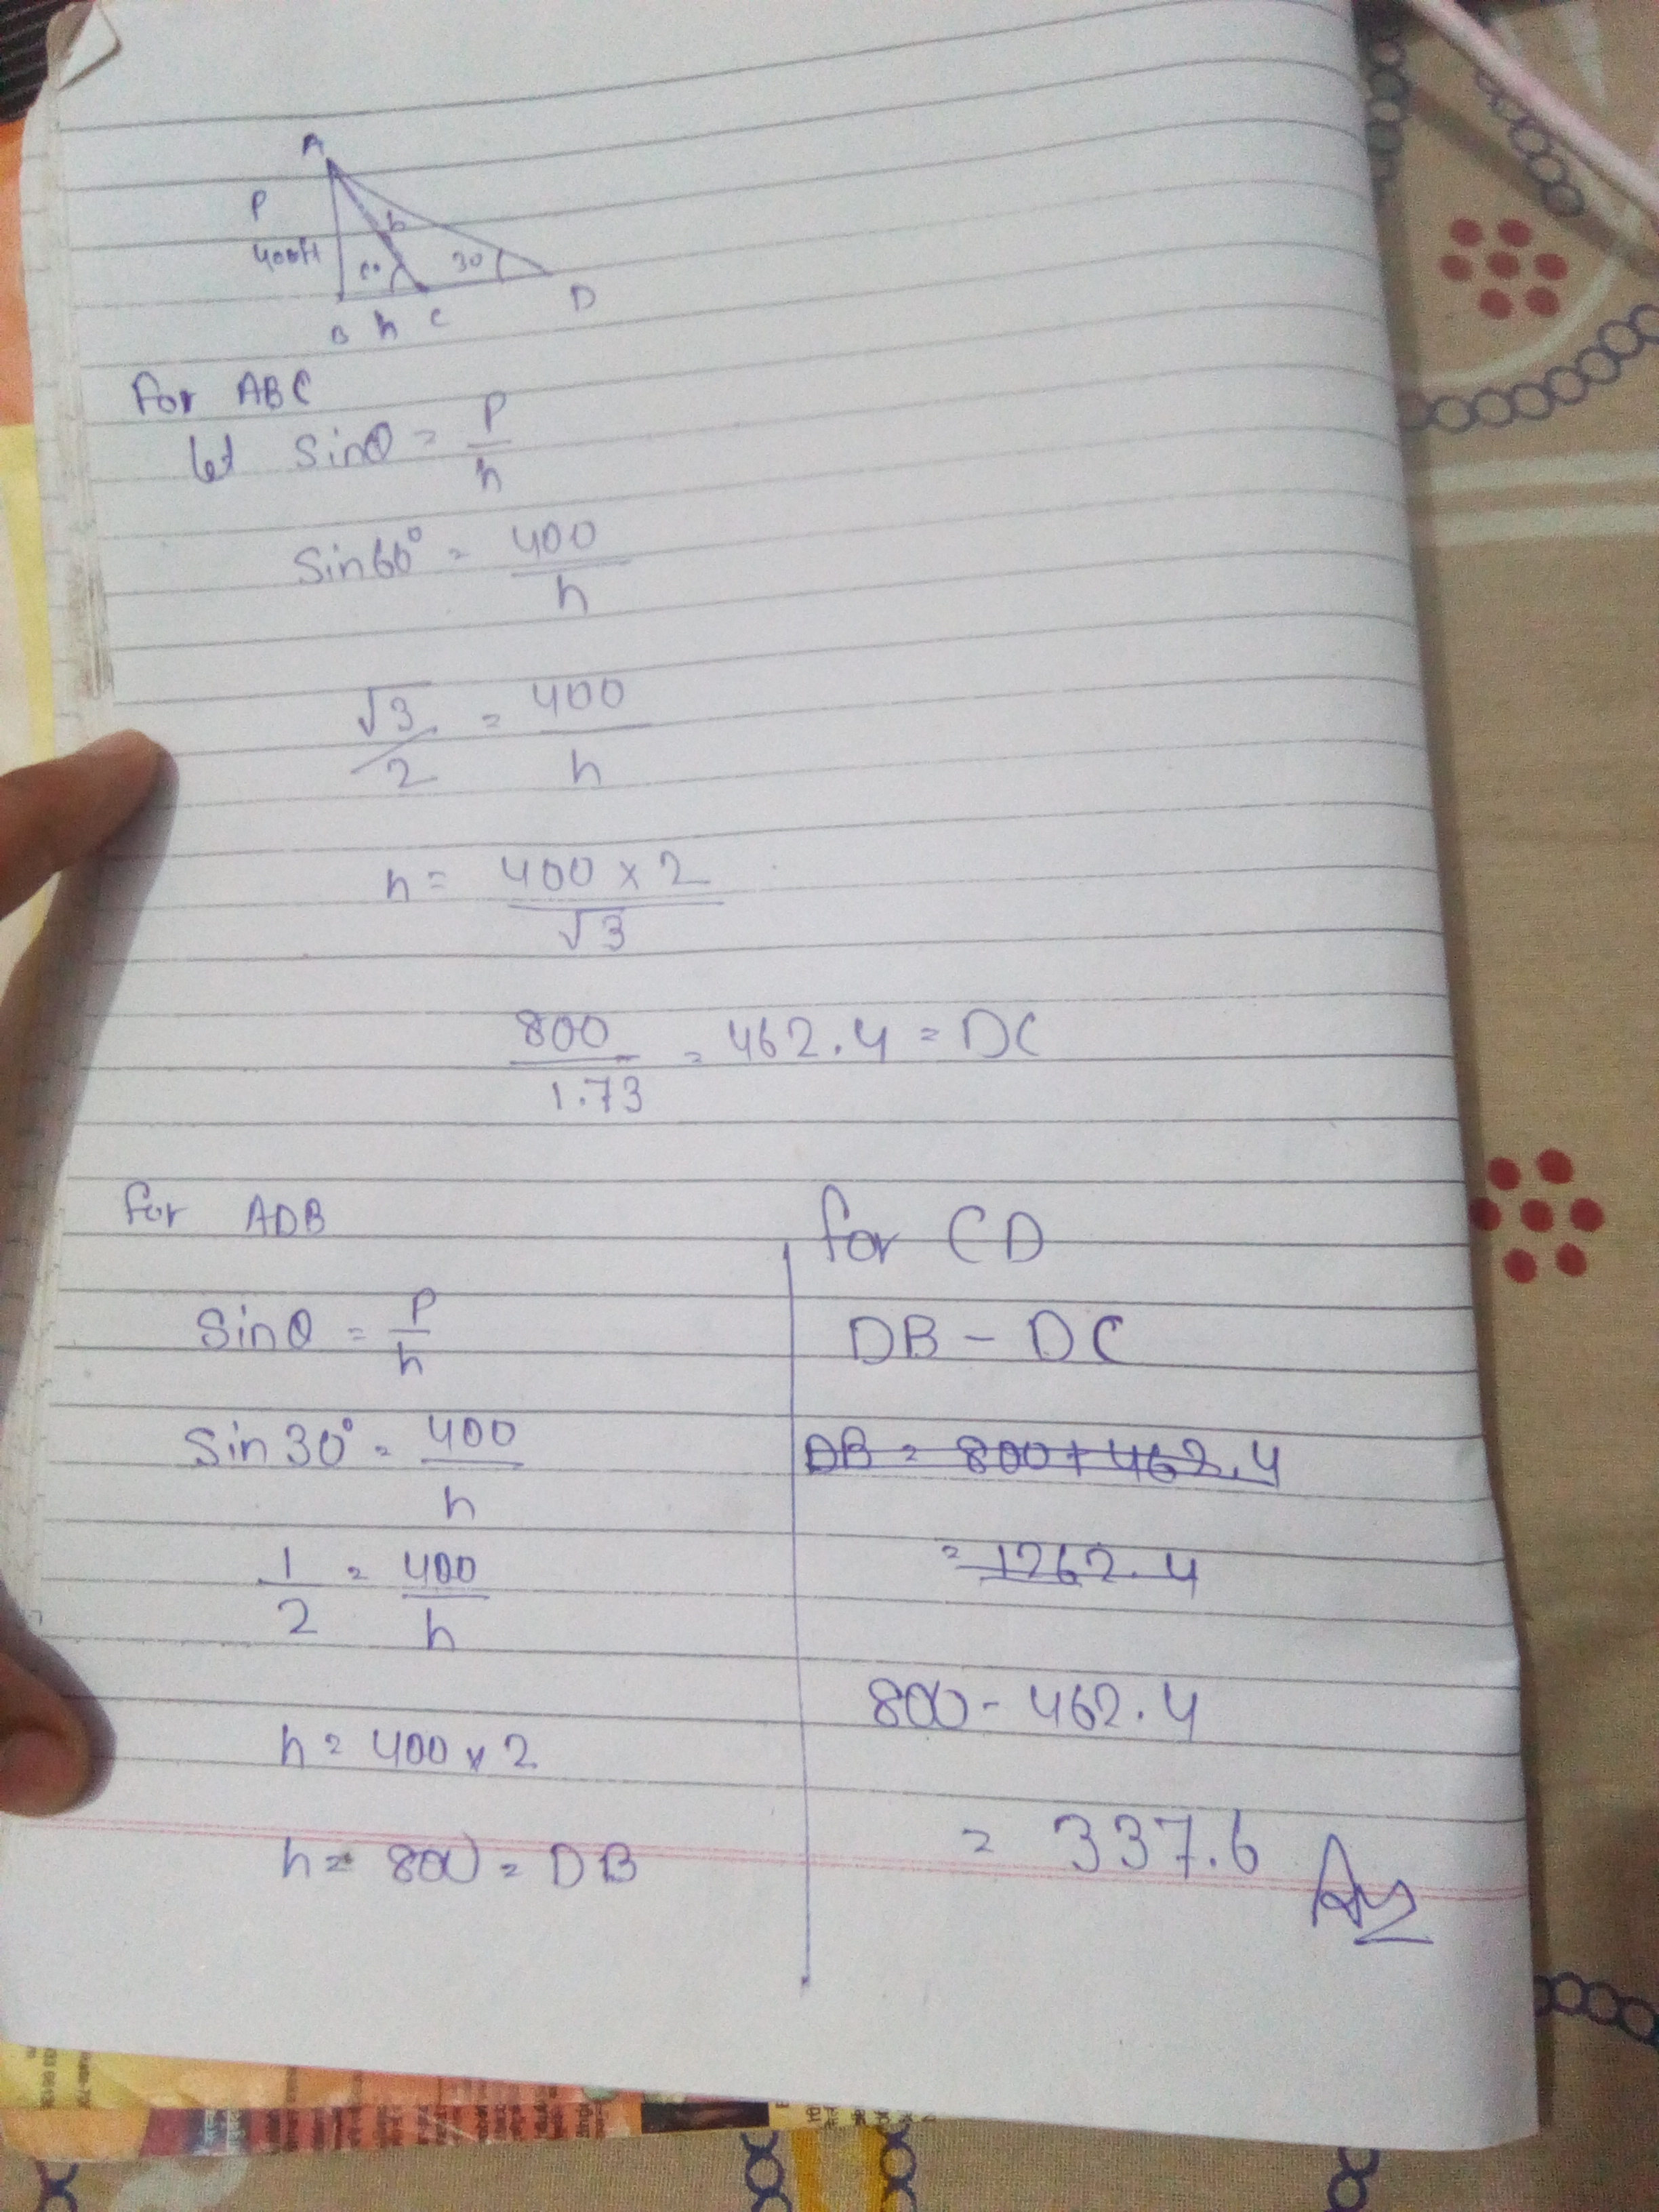 A
P
h
400ft
60
30
B h C
D
For ABC
let Sinθ = P/h
Sin60° = 400/h
√3/2 = 400/h
h = 400 × 2/√3
800/1.73 = 462.4 = DC
for ADB
Sinθ = P/h
Sin30° = 400/h
1/2 = 400/h
h = 400 × 2
h = 800 = DB
for CD
DB - DC
DB = 800 + 462.4
= 1262.4
800 - 462.4
= 337.6 Ans